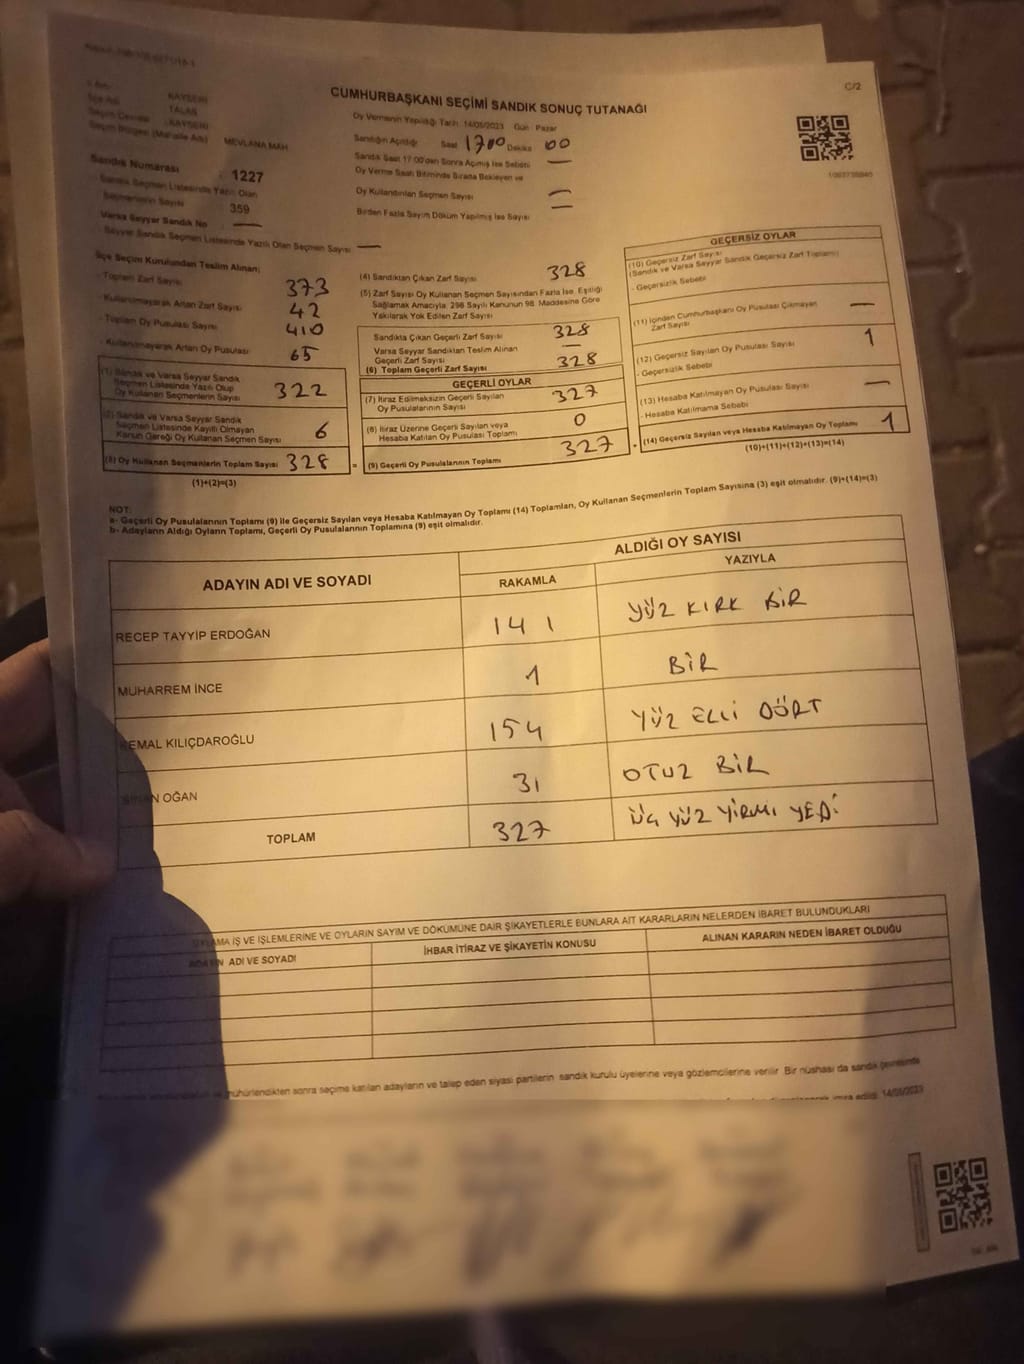 C/2
CUMHURBAŞKANI SEÇİMİ SANDIK SONUÇ TUTANAĞI
İl Adı KAYSERİ
İlçe Adı TALAS
Seçim Çevresi KAYSERİ
Seçim Bölgesi (Mahalle Adı) MEVLANA MAH
Sandık Numarası 1227
- Sandık Seçmen Listesinde Yazılı Olan
Seçmenlerin Sayısı 359
Varsa Seyyar Sandık No —
- Seyyar Sandık Seçmen Listesinde Yazılı Olan Seçmen Sayısı —
Oy Vermenin Yapıldığı Tarih 14/05/2023 Gün : Pazar
Sandığın Açıldığı Saat 17:00 Dakika 00
Sandık Saat 17:00'den Sonra Açılmış İse Sebebi —
Oy Verme Saati Bitiminde Sırada Bekleyen ve
Oy Kullandırılan Seçmen Sayısı —
Birden Fazla Sayım Döküm Yapılmış İse Sayısı =
İlçe Seçim Kurulundan Teslim Alınan;
- Toplam Zarf Sayısı 373
- Kullanılmayarak Artan Zarf Sayısı 42
- Toplam Oy Pusulası Sayısı 410
- Kullanılmayarak Artan Oy Pusulası 65
(1) Sandık ve Varsa Seyyar Sandık
Seçmen Listesinde Yazılı Olup
Oy Kullanan Seçmenlerin Sayısı 322
(2) Sandık ve Varsa Seyyar Sandık
Seçmen Listesinde Kayıtlı Olmayan
Kanun Gereği Oy Kullanan Seçmen Sayısı 6
(3) Oy Kullanan Seçmenlerin Toplam Sayısı 328
(1)+(2)=(3)
(4) Sandıktan Çıkan Zarf Sayısı 328
(5) Zarf Sayısı Oy Kullanan Seçmen Sayısından Fazla İse, Eşitliği
Sağlamak Amacıyla 298 Sayılı Kanunun 98. Maddesine Göre
Yakılarak Yok Edilen Zarf Sayısı
Sandıkta Çıkan Geçerli Zarf Sayısı 328
Varsa Seyyar Sandıktan Teslim Alınan
Geçerli Zarf Sayısı —
(6) Toplam Geçerli Zarf Sayısı 328
GEÇERLİ OYLAR
(7) İtiraz Edilmeksizin Geçerli Sayılan
Oy Pusulalarının Sayısı 327
(8) İtiraz Üzerine Geçerli Sayılan veya
Hesaba Katılan Oy Pusulası Toplamı 0
= (9) Geçerli Oy Pusulalarının Toplamı 327
GEÇERSİZ OYLAR
(10) Geçersiz Zarf Sayısı
(Sandık ve Varsa Seyyar Sandık Geçersiz Zarf Toplamı)
- Geçersizlik Sebebi
(11) İçinden Cumhurbaşkanı Oy Pusulası Çıkmayan
Zarf Sayısı —
(12) Geçersiz Sayılan Oy Pusulası Sayısı 1
- Geçersizlik Sebebi
(13) Hesaba Katılmayan Oy Pusulası Sayısı —
- Hesaba Katılmama Sebebi
+ (14) Geçersiz Sayılan veya Hesaba Katılmayan Oy Toplamı 1
(10)+(11)+(12)+(13)=(14)
NOT:
a- Geçerli Oy Pusulalarının Toplamı (9) ile Geçersiz Sayılan veya Hesaba Katılmayan Oy Toplamı (14) Toplamları, Oy Kullanan Seçmenlerin Toplam Sayısına (3) eşit olmalıdır. (9)+(14)=(3)
b- Adayların Aldığı Oyların Toplamı, Geçerli Oy Pusulalarının Toplamına (9) eşit olmalıdır.
ADAYIN ADI VE SOYADI ALDIĞI OY SAYISI
RAKAMLA YAZIYLA
RECEP TAYYİP ERDOĞAN 141 YÜZ KIRK BİR
MUHARREM İNCE 1 BİR
KEMAL KILIÇDAROĞLU 154 YÜZ ELLİ DÖRT
SİNAN OĞAN 31 OTUZ BİR
TOPLAM 327 ÜÇ YÜZ YİRMİ YEDİ
İŞ VE İŞLEMLERİNE VE OYLARIN SAYIM VE DÖKÜMÜNE DAİR ŞİKAYETLERLE BUNLARA AİT KARARLARIN NELERDEN İBARET BULUNDUKLARI
ADI VE SOYADI İHBAR İTİRAZ VE ŞİKAYETİN KONUSU ALINAN KARARIN NEDEN İBARET OLDUĞU
mühürlendikten sonra seçime katılan adayların ve talep eden siyasi partilerin sandık kurulu üyelerine veya gözlemcilerine verilir Bir nüshası da sandık çevresinde
imza edildi. 14/05/2023